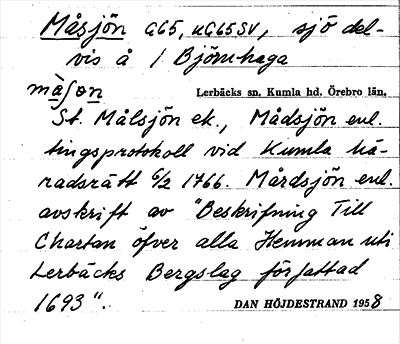 Måsjön G65, UG65SV, sjö del-
vis å 1 Björnhaga
måʃon Lerbäcks sn. Kumla hd. Örebro län.
St. Målsjön ek., Mådsjön enl.
tingsprotokoll vid Kumla hä-
radsrätt 6/2 1766. Mårdsjön enl.
avskrift av "Beskrifning Till
Chartan öfver alla Hemman uti
Lerbäcks Bergslag författad
1693".
DAN HÖJDESTRAND 1958